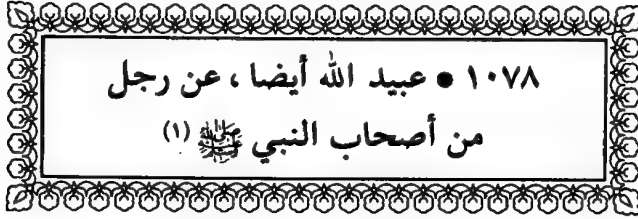 ١٠٧٨ • عبيد الله أيضا ، عن رجل
من أصحاب النبي ﷺ (١)